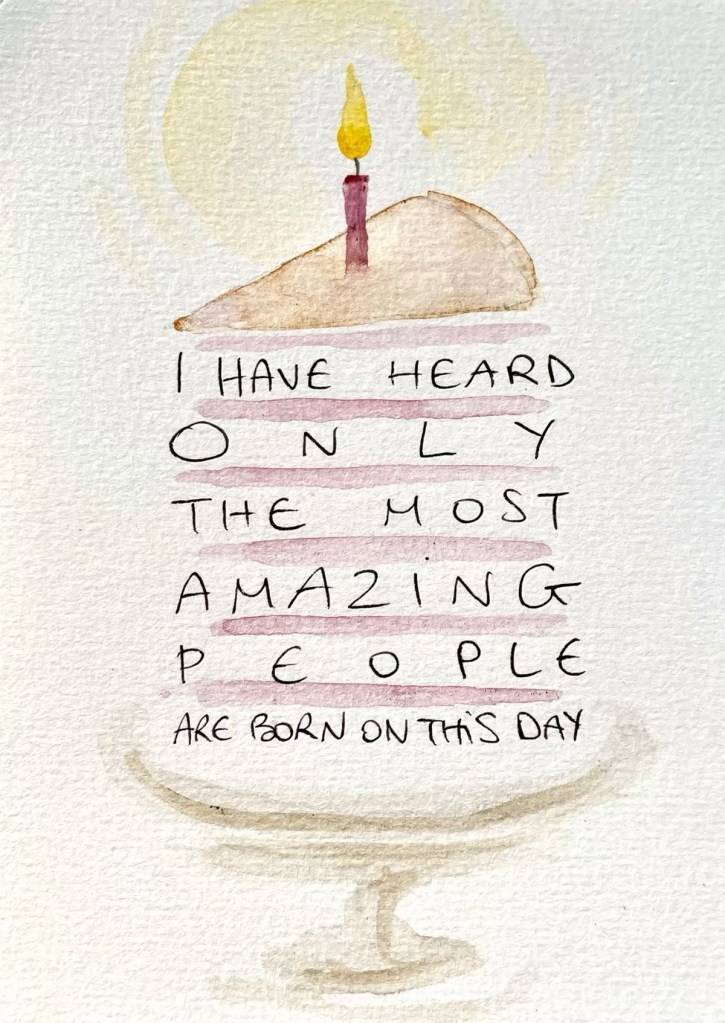 I HAVE HEARD
ONLY
THE MOST
AMAZING
PEOPLE
ARE BORN ON THiS DAY